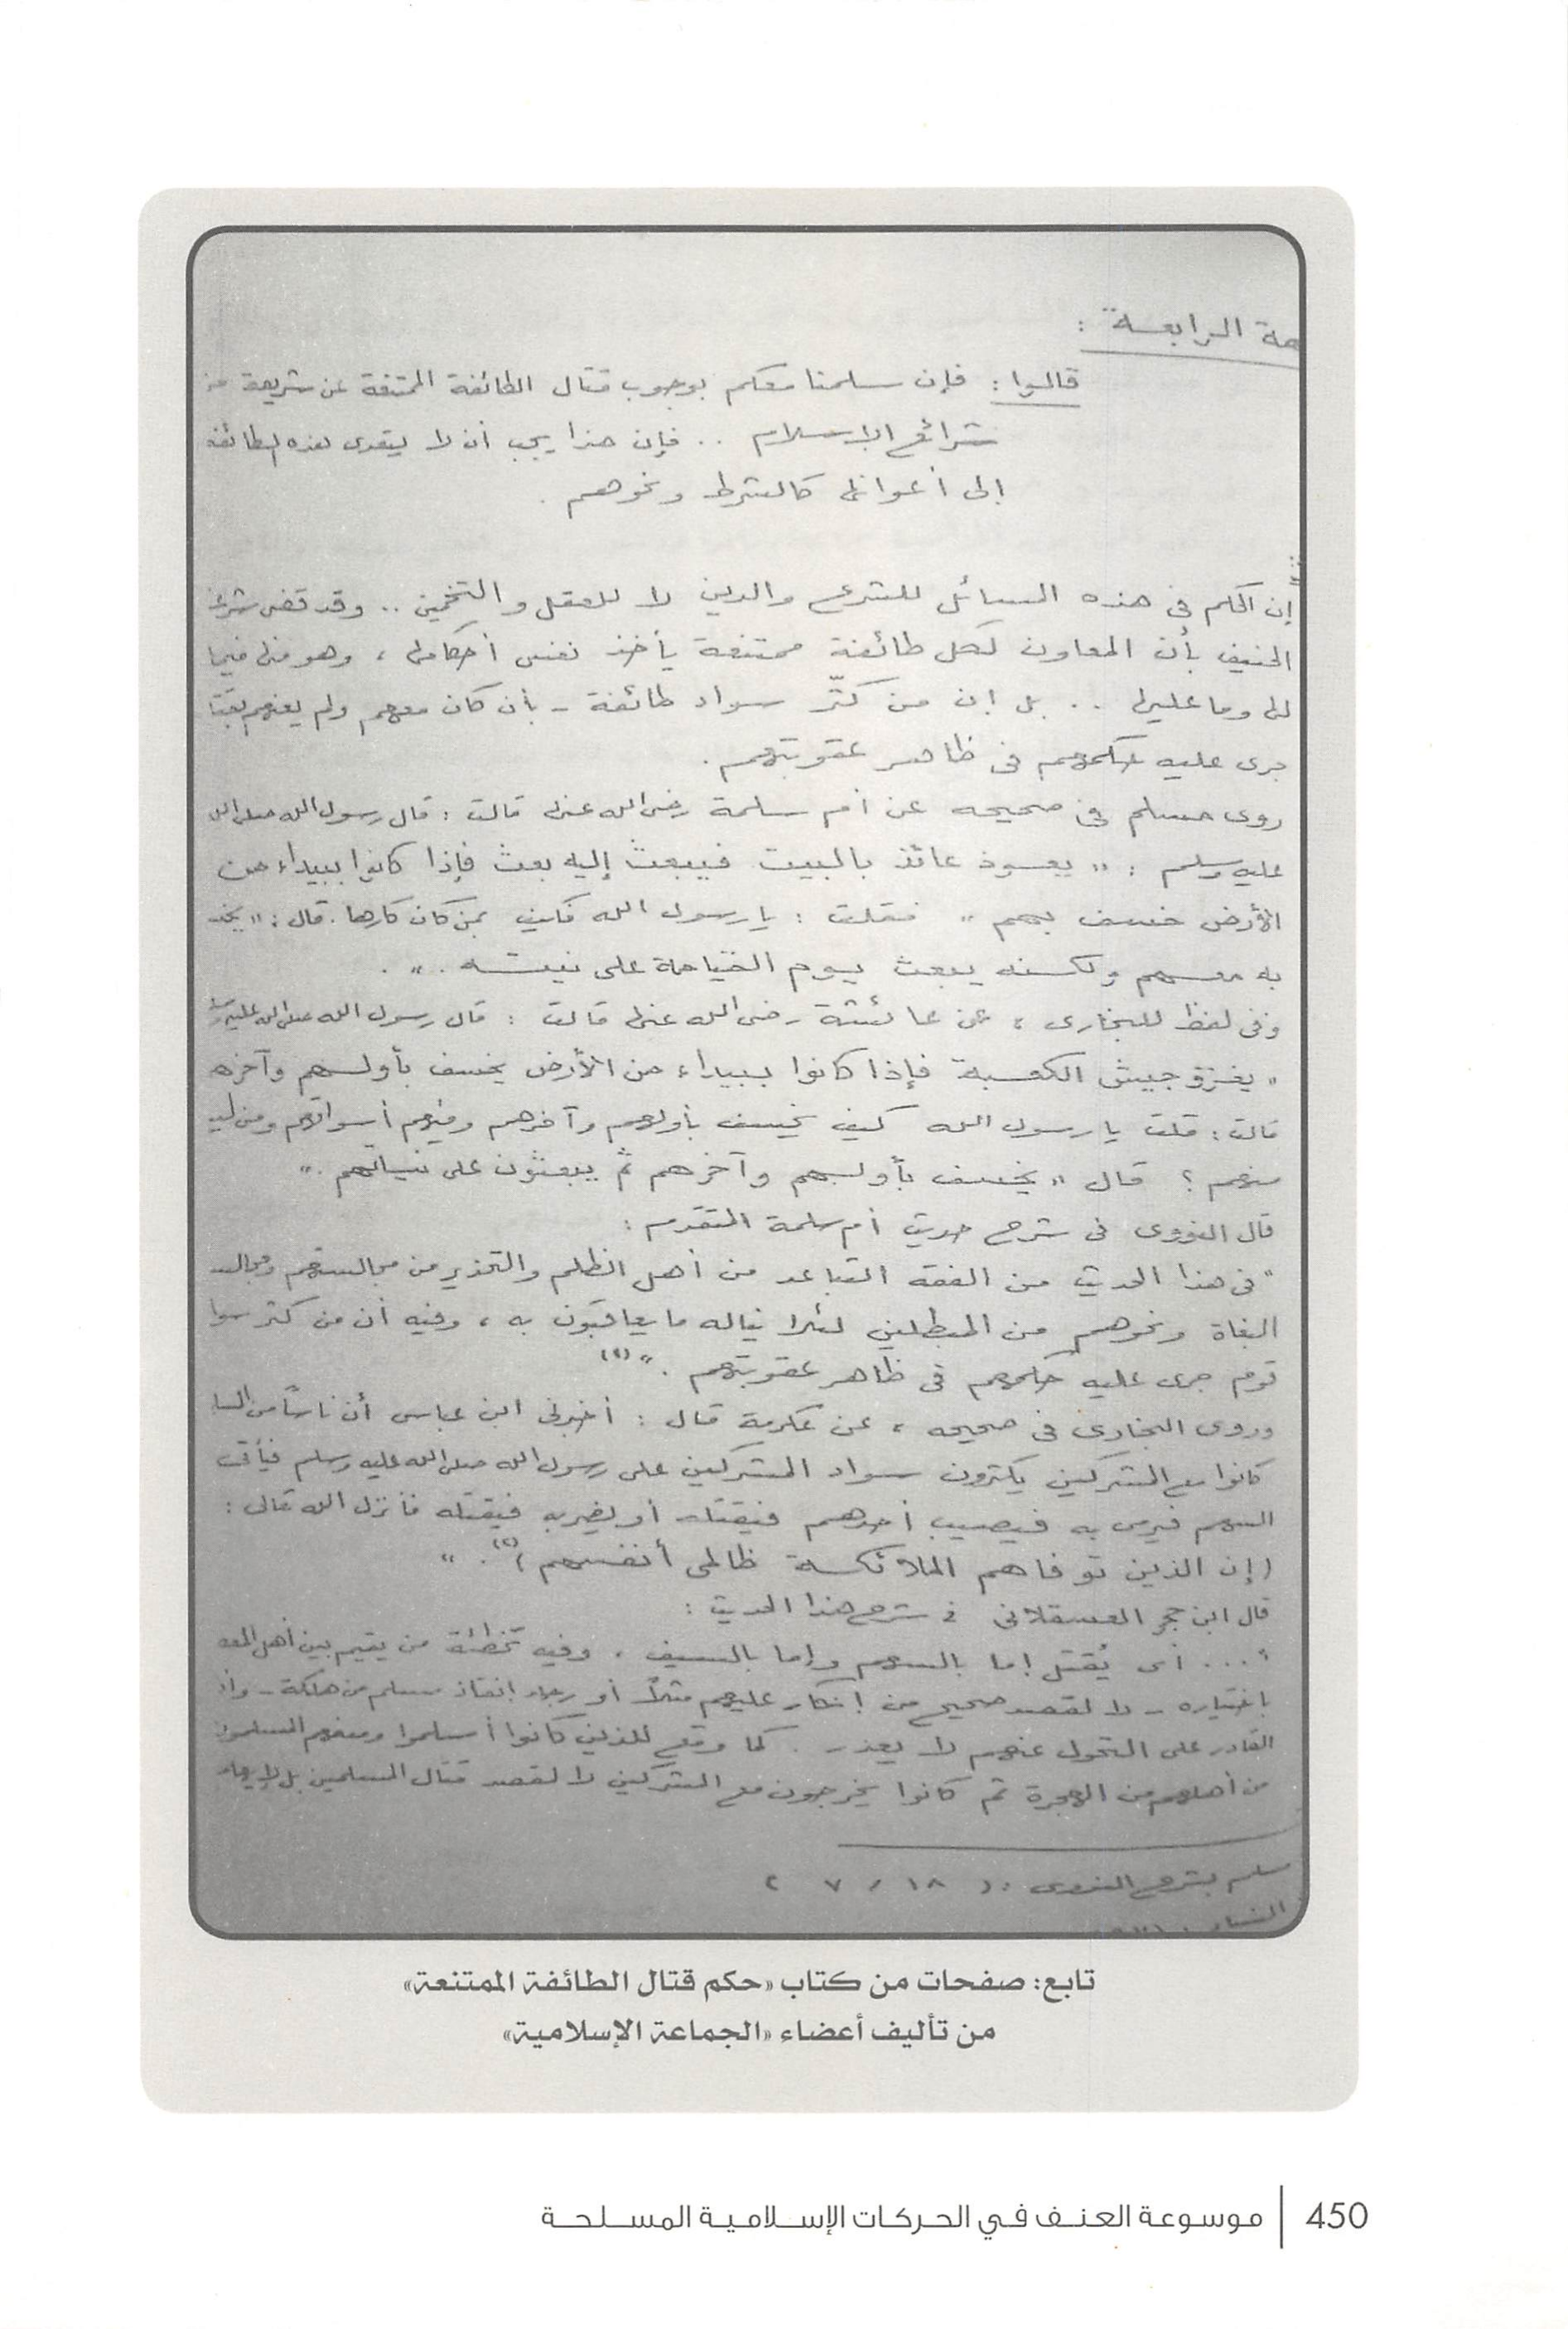 ـهة الرابعة :
قالوا : فإن سلمنا معكم بوجوب قتال الطائفة الممتنعة عن شريعة من
شرائع الإسلام .. فإن هذا يجب أن لا يتعدى هذه الطائفة
إلى أعوانها كالشرط ونحوهم .
إن الحكم فى هذه المسائل للشرع والدين لا للعقل والتخمين .. وقد قضى شرعنا
الحنيف بأن المعاون لكل طائفة ممتنعة يأخذ نفس أحكامها ، وهو منها فيما
لها وما عليها .. بل إن من كثّر سواد طائفة - بأن كان معهم ولم يعنهم
جرى عليه حكمهم فى ظاهر عقوبتهم .
روى مسلم فى صحيحه عن أم سلمة رضى الله عنها قالت : قال رسول الله صلى الله
عليه وسلم : " يعوذ عائذ بالبيت فيبعث إليه بعث فإذا كانوا ببيداء من
الأرض خسف بهم " فقلت : يا رسول الله فكيف بمن كان كارها . قال : " يخسف
به معهم ولكنه يبعث يوم القيامة على نيته . " .
وفى لفظ للبخارى ، عن عائشة رضى الله عنها قالت : قال رسول الله صلى الله عليه وسلم
" يغزو جيش الكعبة فإذا كانوا ببيداء من الأرض يخسف بأولهم وآخرهم
قالت : قلت يا رسول الله كيف يخسف بأولهم وآخرهم وفيهم أسواقهم ومن ليس
منهم ؟ قال " يخسف بأولهم وآخرهم ثم يبعثون على نياتهم . "
قال النووى فى شرح حديث أم سلمة المتقدم :
" فى هذا الحديث من الفقه التباعد من أهل الظلم والتحذير من مجالستهم ومجالسة
البغاة ونحوهم من المبطلين لئلا يناله ما يعاقبون به ، وفيه أن من كثر سواد
قوم جرى عليه حكمهم فى ظاهر عقوبتهم . " (١)
وروى البخارى فى صحيحه ، عن عكرمة قال : أخبرنى ابن عباس أن ناسًا من المسلمين
كانوا مع المشركين يكثرون سواد المشركين على رسول الله صلى الله عليه وسلم فيأتى
السهم فيرمى به فيصيب أحدهم فيقتله أو يضربه فيقتله فأنزل الله تعالى :
( إن الذين توفاهم الملائكة ظالمى أنفسهم ) (٢) . "
قال ابن حجر العسقلانى فى شرح هذا الحديث :
" ... أى يُقتل إما بالسهم وإما بالسيف . وفيه تخطئة من يقيم بين أهل المعصية
باختياره - لا لقصد صحيح من إنكار عليهم مثلًا أو رجاء إنقاذ مسلم من هلكة - وأن
القادر على التحول عنهم لا يعذر . كما وقع للذين كانوا أسلموا ومنعهم المشركون
من أهلهم من الهجرة ثم كانوا يخرجون مع المشركين لا لقصد قتال المسلمين بل لإيهام
مسلم بشرح النووى : ١٨ / ٧
النساء
تابع: صفحات من كتاب «حكم قتال الطائفة الممتنعة»
من تأليف أعضاء «الجماعة الإسلامية»
450 | موسوعة العنف في الحركات الإسلامية المسلحة